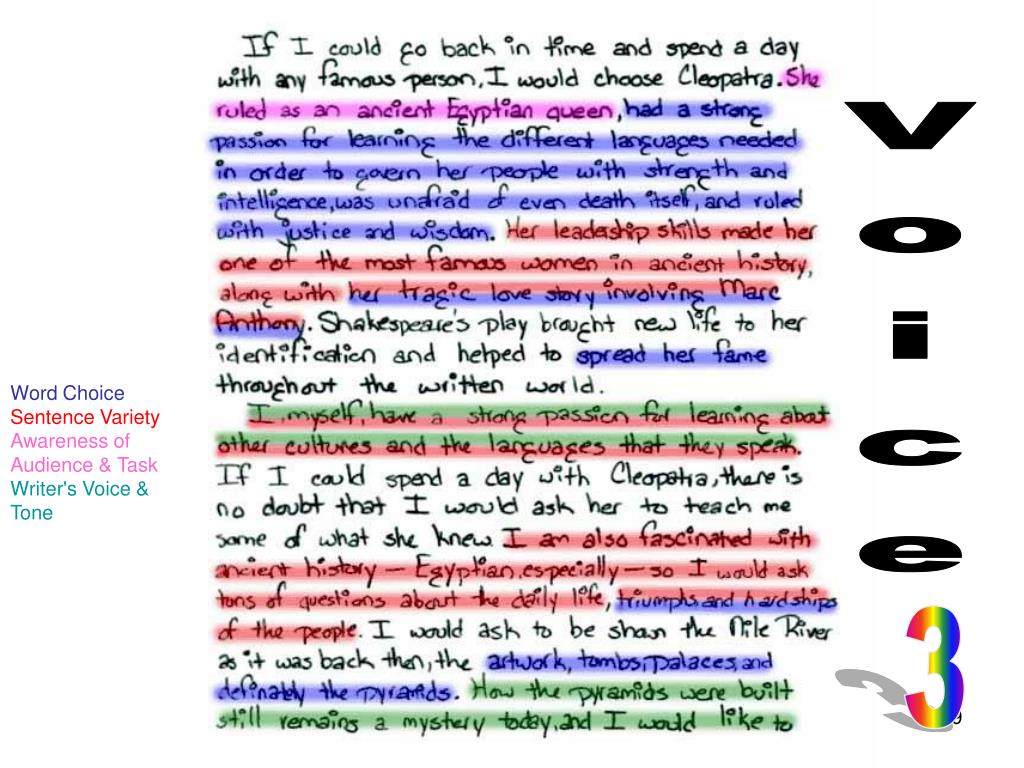 If I could go back in time and spend a day
with any famous person, I would choose Cleopatra. She
ruled as an ancient Egyptian queen, had a strong
passion for learning the different languages needed
in order to govern her people with strength and
intelligence, was unafraid of even death itself, and ruled
with justice and wisdom. Her leadership skills made her
one of the most famous women in ancient history,
along with her tragic love story involving Marc
Anthony. Shakespeare's play brought new life to her
identification and helped to spread her fame
throughout the written world.
I, myself, have a strong passion for learning about
other cultures and the languages that they speak.
If I could spend a day with Cleopatra, there is
no doubt that I would ask her to teach me
some of what she knew. I am also fascinated with
ancient history — Egyptian, especially — so I would ask
tons of questions about the daily life, triumphs, and hardships
of the people. I would ask to be shown the Nile River
as it was back then, the artwork, tombs, palaces, and
definately the pyramids. How the pyramids were built
still remains a mystery today, and I would like to
Word Choice
Sentence Variety
Awareness of
Audience & Task
Writer's Voice &
Tone
Voice
3
9